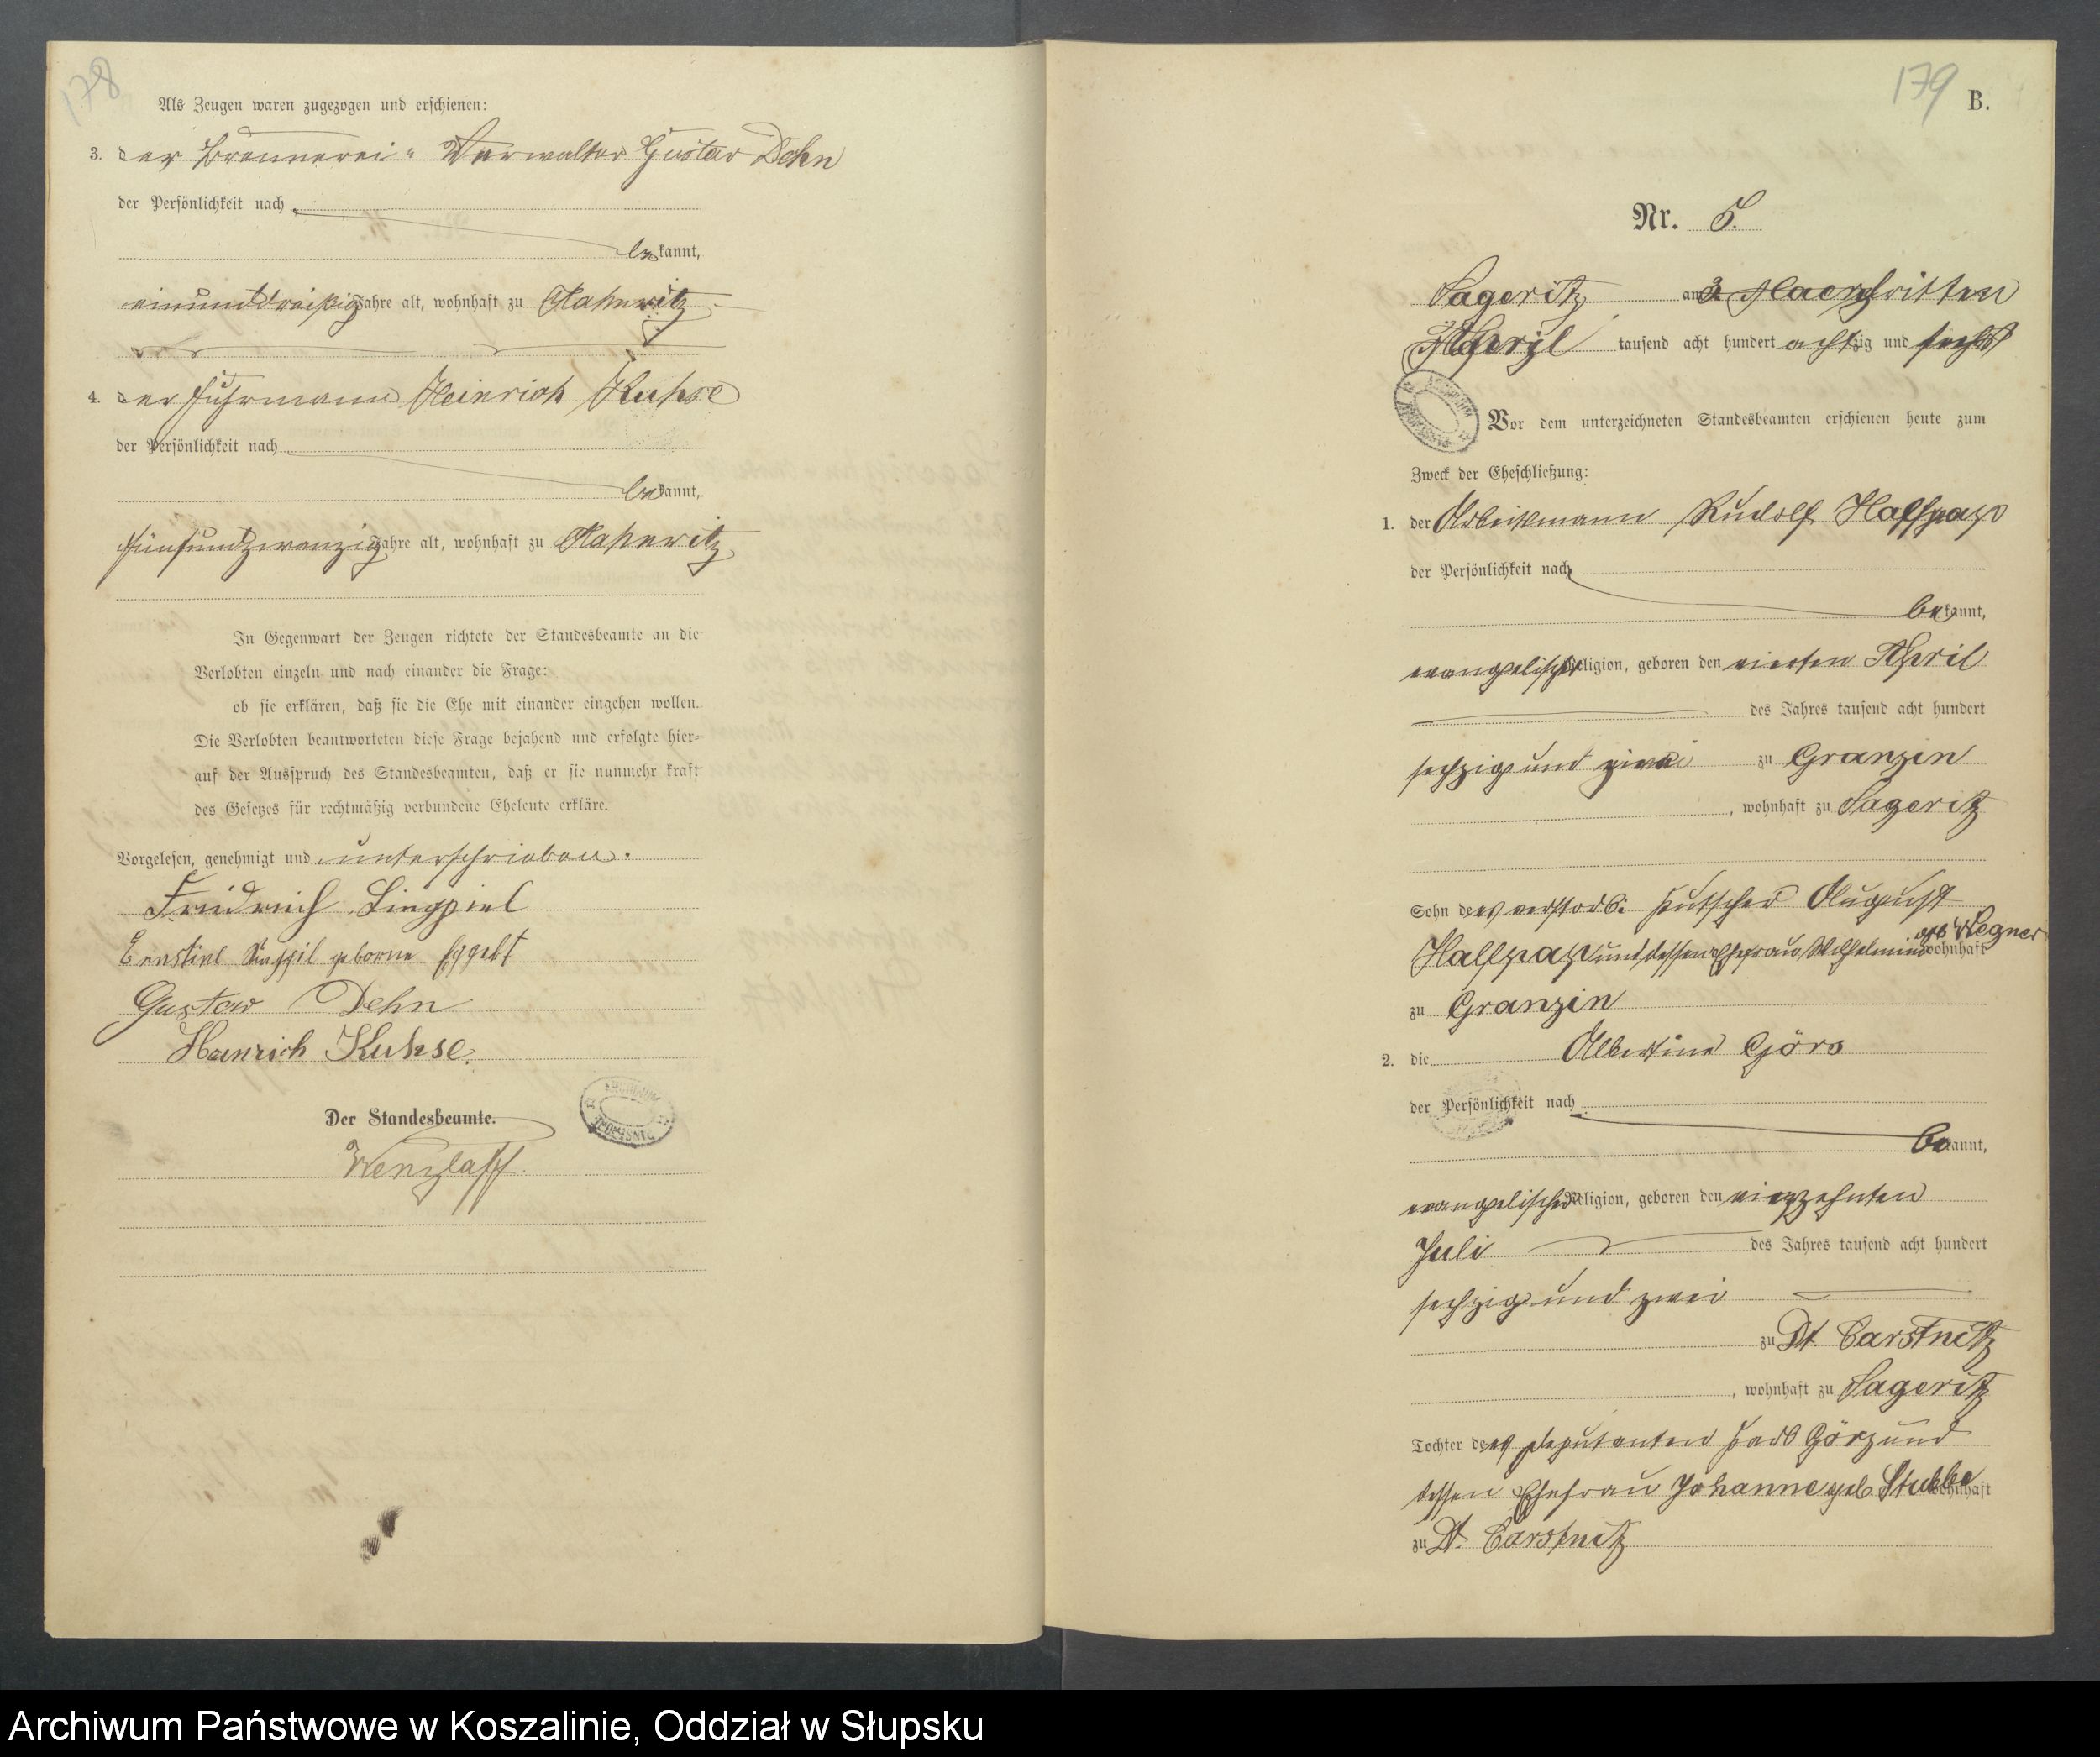 178
Als Zeugen waren zugezogen und erschienen:
3. der Brennerei-Verwalter Gustav Dehn
der Persönlichkeit nach
bekannt,
einunddreißig Jahre alt, wohnhaft zu
4. der Fuhrmann Heinrich Kuhse
der Persönlichkeit nach
bekannt,
fünfundzwanzig Jahre alt, wohnhaft zu
In Gegenwart der Zeugen richtete der Standesbeamte an die
Verlobten einzeln und nach einander die Frage:
ob sie erklären, daß sie die Ehe mit einander eingehen wollen.
Die Verlobten beantworteten diese Frage bejahend und erfolgte hier-
auf der Ausspruch des Standesbeamten, daß er sie nunmehr kraft
des Gesetzes für rechtmäßig verbundene Eheleute erkläre.
Vorgelesen, genehmigt und unterschrieben.
Friedrich
geborne
Gustav Dehn
Heinrich Kuhse.
Der Standesbeamte.
Wenzlaff.
179
B.
Nr. 5.
Sageritz am dritten
April tausend acht hundert achtzig und sechs
Vor dem unterzeichneten Standesbeamten erschienen heute zum
Zweck der Eheschließung:
1. der Arbeitsmann Rudolf Halfpap
der Persönlichkeit nach
bekannt,
evangelischer Religion, geboren den vierten April
des Jahres tausend acht hundert
sechzig und zwei zu Granzin
, wohnhaft zu Sageritz
Sohn des verstorb. Kutscher August
Halfpap und dessen Ehefrau Wilhelmine geb Wegner wohnhaft
zu Granzin
2. die Albertine Görs
der Persönlichkeit nach
bekannt,
evangelischer Religion, geboren den vierzehnten
Juli des Jahres tausend acht hundert
sechzig und zwei
zu Dt. Carstnitz
, wohnhaft zu Sageritz
Tochter des Deputanten Karl Görs und
dessen Ehefrau Johanne geb. Stubbe wohnhaft
zu Dt. Carstnitz
Archiwum Państwowe w Koszalinie, Oddział w Słupsku